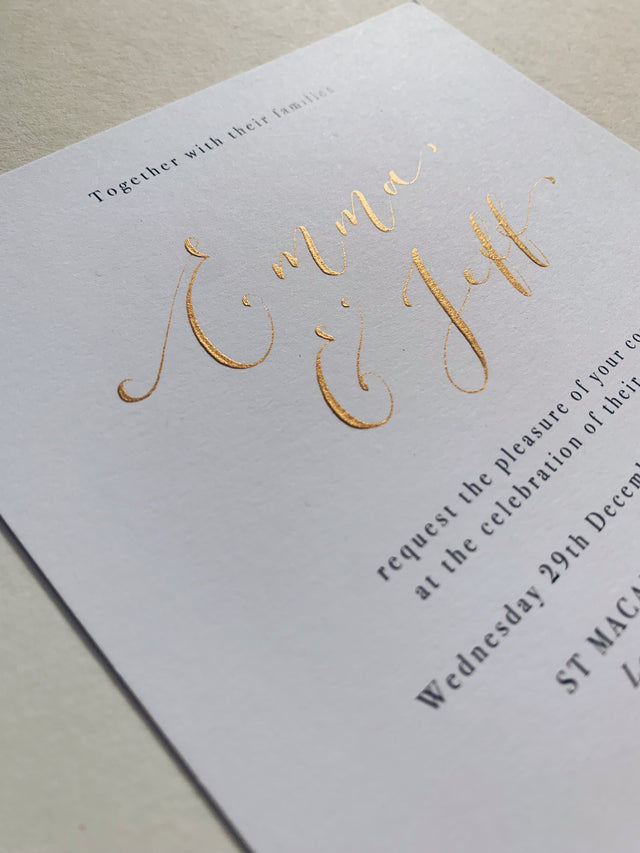 Together with their families
Emma
& Jeff
request the pleasure of your co
at the celebration of their
Wednesday 29th Decemb
ST MACA